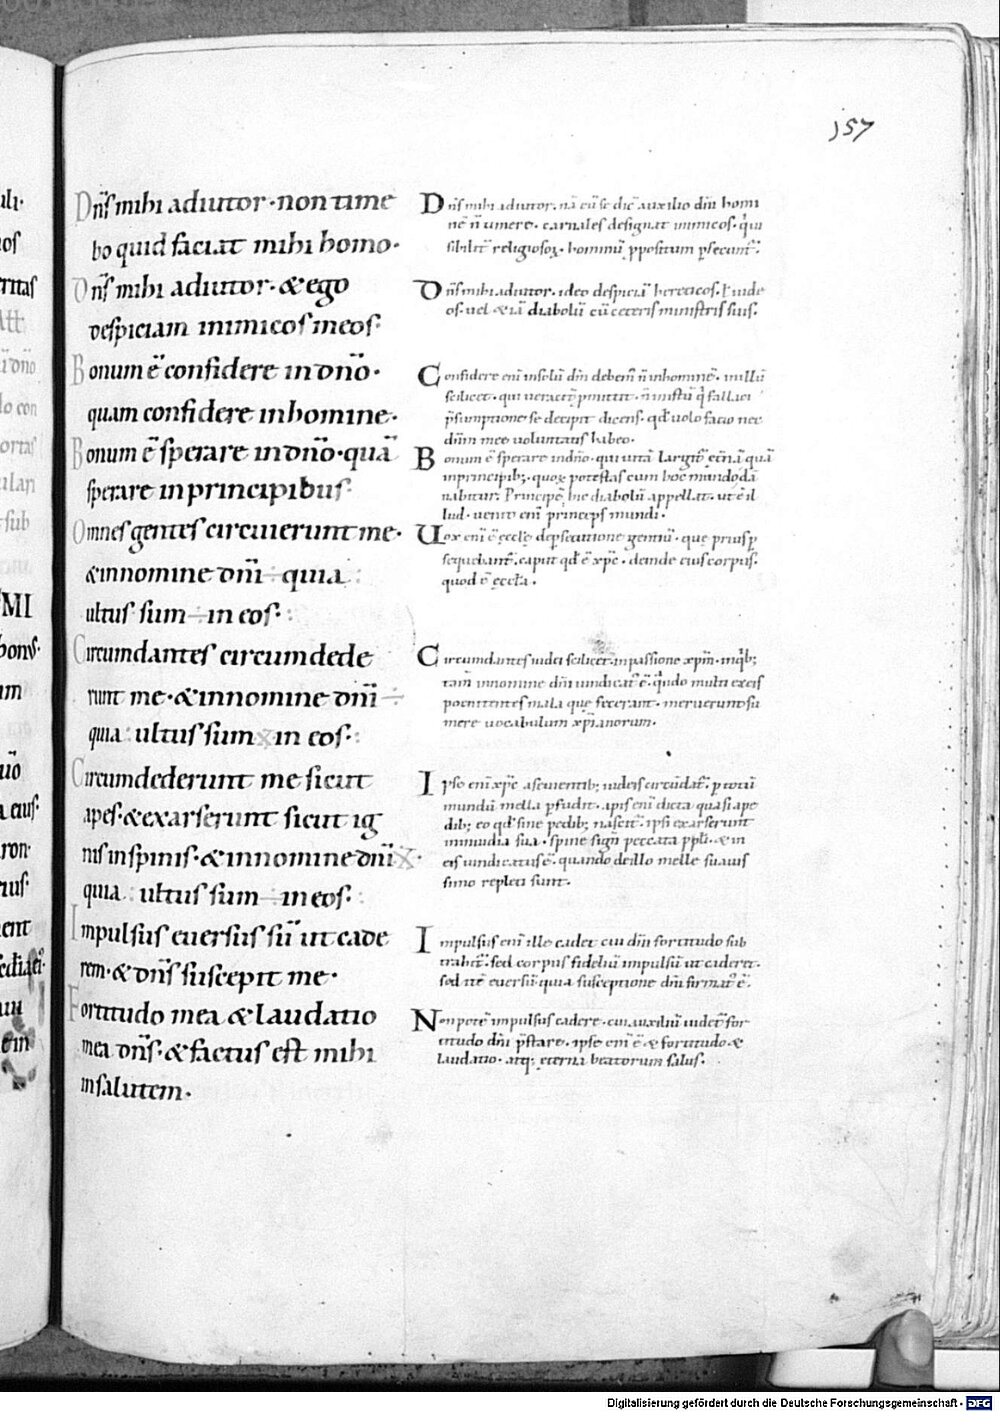 157
Dn̄s mihi adiutor · non time
bo quid faciat mihi homo ·
Dn̄s mihi adiutor · & ego
despiciam inimicos meos ·
Bonum ē confidere in dn̄o ·
quam confidere in homine ·
Bonum ē sperare in dn̄o · quā
sperare in principibus ·
Omnes gentes circuierunt me ·
& in nomine dn̄i ÷ quia :
ultus sum ÷ in eos · :
Circumdantes circumdede
runt me · & in nomine dn̄i ÷
quia : ultus sum ※ in eos · :
Circumdederunt me sicut
apes · & exarserunt sicut ig
nis in spinis · & in nomine dn̄i ※ ·
quia : ultus sum ÷ in eos · :
Impulsus euersus sū ut cade
rem · & dn̄s suscepit me ·
Fortitudo mea & laudatio
mea dn̄s · & factus est mihi
in salutem ·
Dn̄s mihi adiutor · nā cū se dic̄ auxilio dn̄i homi
nē n̄ timere · carnales designat inimicos · qui
religiosoꝝ · hominū ꝓpositum ꝑsecunt̄ ·
Dn̄s mihi adiutor · ideo despiciā hereticos · ł iude
os · uel &iā diabolū cū ceteris ministris suis ·
Confidere eni in solū dn̄m debem̄ n̄ in homine · in illū
scilicet · qui ueracit̄ ꝓmittit · n̄ in istū q̇ fallaci
p̄sumptione se decipit dicens · qd̄ uolo facio nec
dn̄m meę uoluntatis habeo ·
Bonum ē sperare in dn̄o · qui uitā largit̄ et̄nā quā
in principib; · quoꝝ potestas cum hoc mundo dā
nabitur · Principē hic diabolū appellat · ut ē il
lud · uenit eni princeps mundi ·
Uox eni ē ęcclę de ꝑsecutione gentiū · que prius ꝑ
sequebant̄ · caput qd̄ ē xp̄c · deinde eius corpus ·
quod ē ęccła ·
Circumdantes iudei scilicet · in passione xp̄m · in q̇b;
tam̄ in nomine dn̄i uindicat̄ ē · q̇ndo multi ex eis
poenitentes mala quę fecerant · meruerunt su
mere uocabulum xp̄ianorum ·
Ipse eni xp̄c a seuientib; iudeis circūdat̄ · ꝑ totū
mundū mella ꝓfudit · apis eni dicta quasi ape
dib; eo qd̄ sine pedib; nascit̄ · ipsi exarserunt
inuidia sua · spine sign̄ peccata ppłi · & in
eis uindicatus ē · quando de illo melle suauis
simo repleti sunt ·
Impulsus eni ille cadet cui dn̄i fortitudo sub
trahet̄ · sed corpus fidelū impulsū ut caderet ·
sed n̄ ē euersū quia susceptione dn̄i firmat̄ ē ·
Non potest impulsus cadere · cui auxiliū uidet̄ for
titudo dn̄i p̄stare · ipse eni ē & fortitudo &
laudatio · atq; ęterna beatorum salus ·
Digitalisierung gefördert durch die Deutsche Forschungsgemeinschaft · DFG